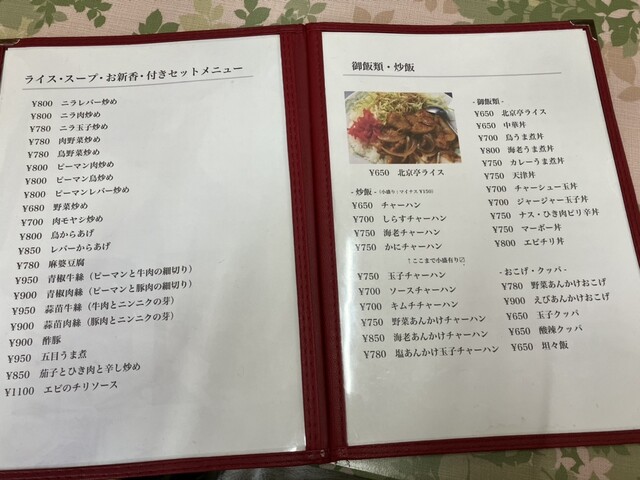 ライス・スープ・お新香・付きセットメニュー
¥800 ニラレバー炒め
¥800 ニラ肉炒め
¥780 ニラ玉子炒め
¥780 肉野菜炒め
¥780 鳥野菜炒め
¥800 ピーマン肉炒め
¥800 ピーマン鳥炒め
¥800 ピーマンレバー炒め
¥680 野菜炒め
¥700 肉モヤシ炒め
¥800 鳥からあげ
¥850 レバーからあげ
¥780 麻婆豆腐
¥950 青椒牛絲（ピーマンと牛肉の細切り）
¥900 青椒肉絲（ピーマンと豚肉の細切り）
¥950 蒜苗牛絲（牛肉とニンニクの芽）
¥900 蒜苗肉絲（豚肉とニンニクの芽）
¥900 酢豚
¥950 五目うま煮
¥850 茄子とひき肉と辛し炒め
¥1100 エビのチリソース
御飯類・炒飯
¥650 北京亭ライス
- 炒飯 -（小盛り：マイナス¥150）
¥650 チャーハン
¥700 しらすチャーハン
¥750 海老チャーハン
¥750 かにチャーハン
↑ここまで小盛有り☑
¥750 玉子チャーハン
¥700 ソースチャーハン
¥700 キムチチャーハン
¥750 野菜あんかけチャーハン
¥850 海老あんかけチャーハン
¥780 塩あんかけ玉子チャーハン
- 御飯類 -
¥650 北京亭ライス
¥650 中華丼
¥700 鳥うま煮丼
¥800 海老うま煮丼
¥750 カレーうま煮丼
¥750 天津丼
¥700 チャーシュー玉丼
¥700 ジャージャー玉子丼
¥750 ナス・ひき肉ピリ辛丼
¥750 マーボー丼
¥800 エビチリ丼
- おこげ・クッパ -
¥780 野菜あんかけおこげ
¥900 えびあんかけおこげ
¥650 玉子クッパ
¥650 酸辣クッパ
¥650 坦々飯